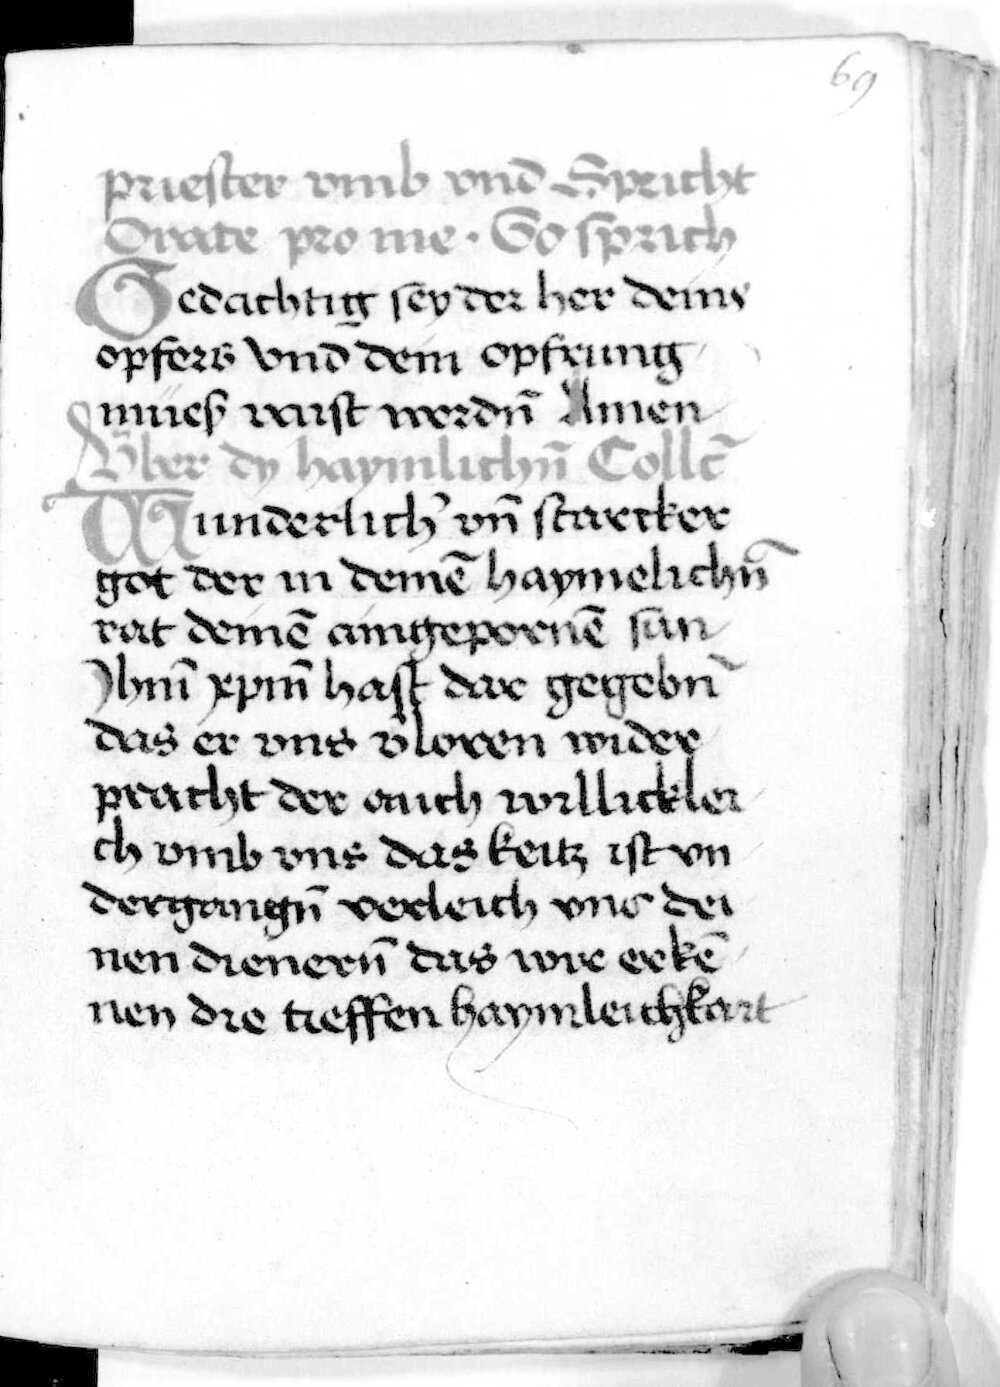 69
priester vmb vnd Spricht
Orate pro me · So sprich
Gedachtig sey der her deins
opfers vnd dein opfrung
müeß vaist werdn̄ Amen
V̄ber dy haymlichn̄ Collc̄
Wunderlich' vn̄ starcker
got der in deinē haymelichn̄
rat deinē aingepornē sun
Jhm̄ xpm̄ hast dar gegebn̄
das er vns v̄loren wider
pracht der auch willicklei
ch vmb vns das keitz ist vn
dergangn̄ verleich vns dei
nen dienern̄ das wir erkē
nen die tieffen haymleichkait